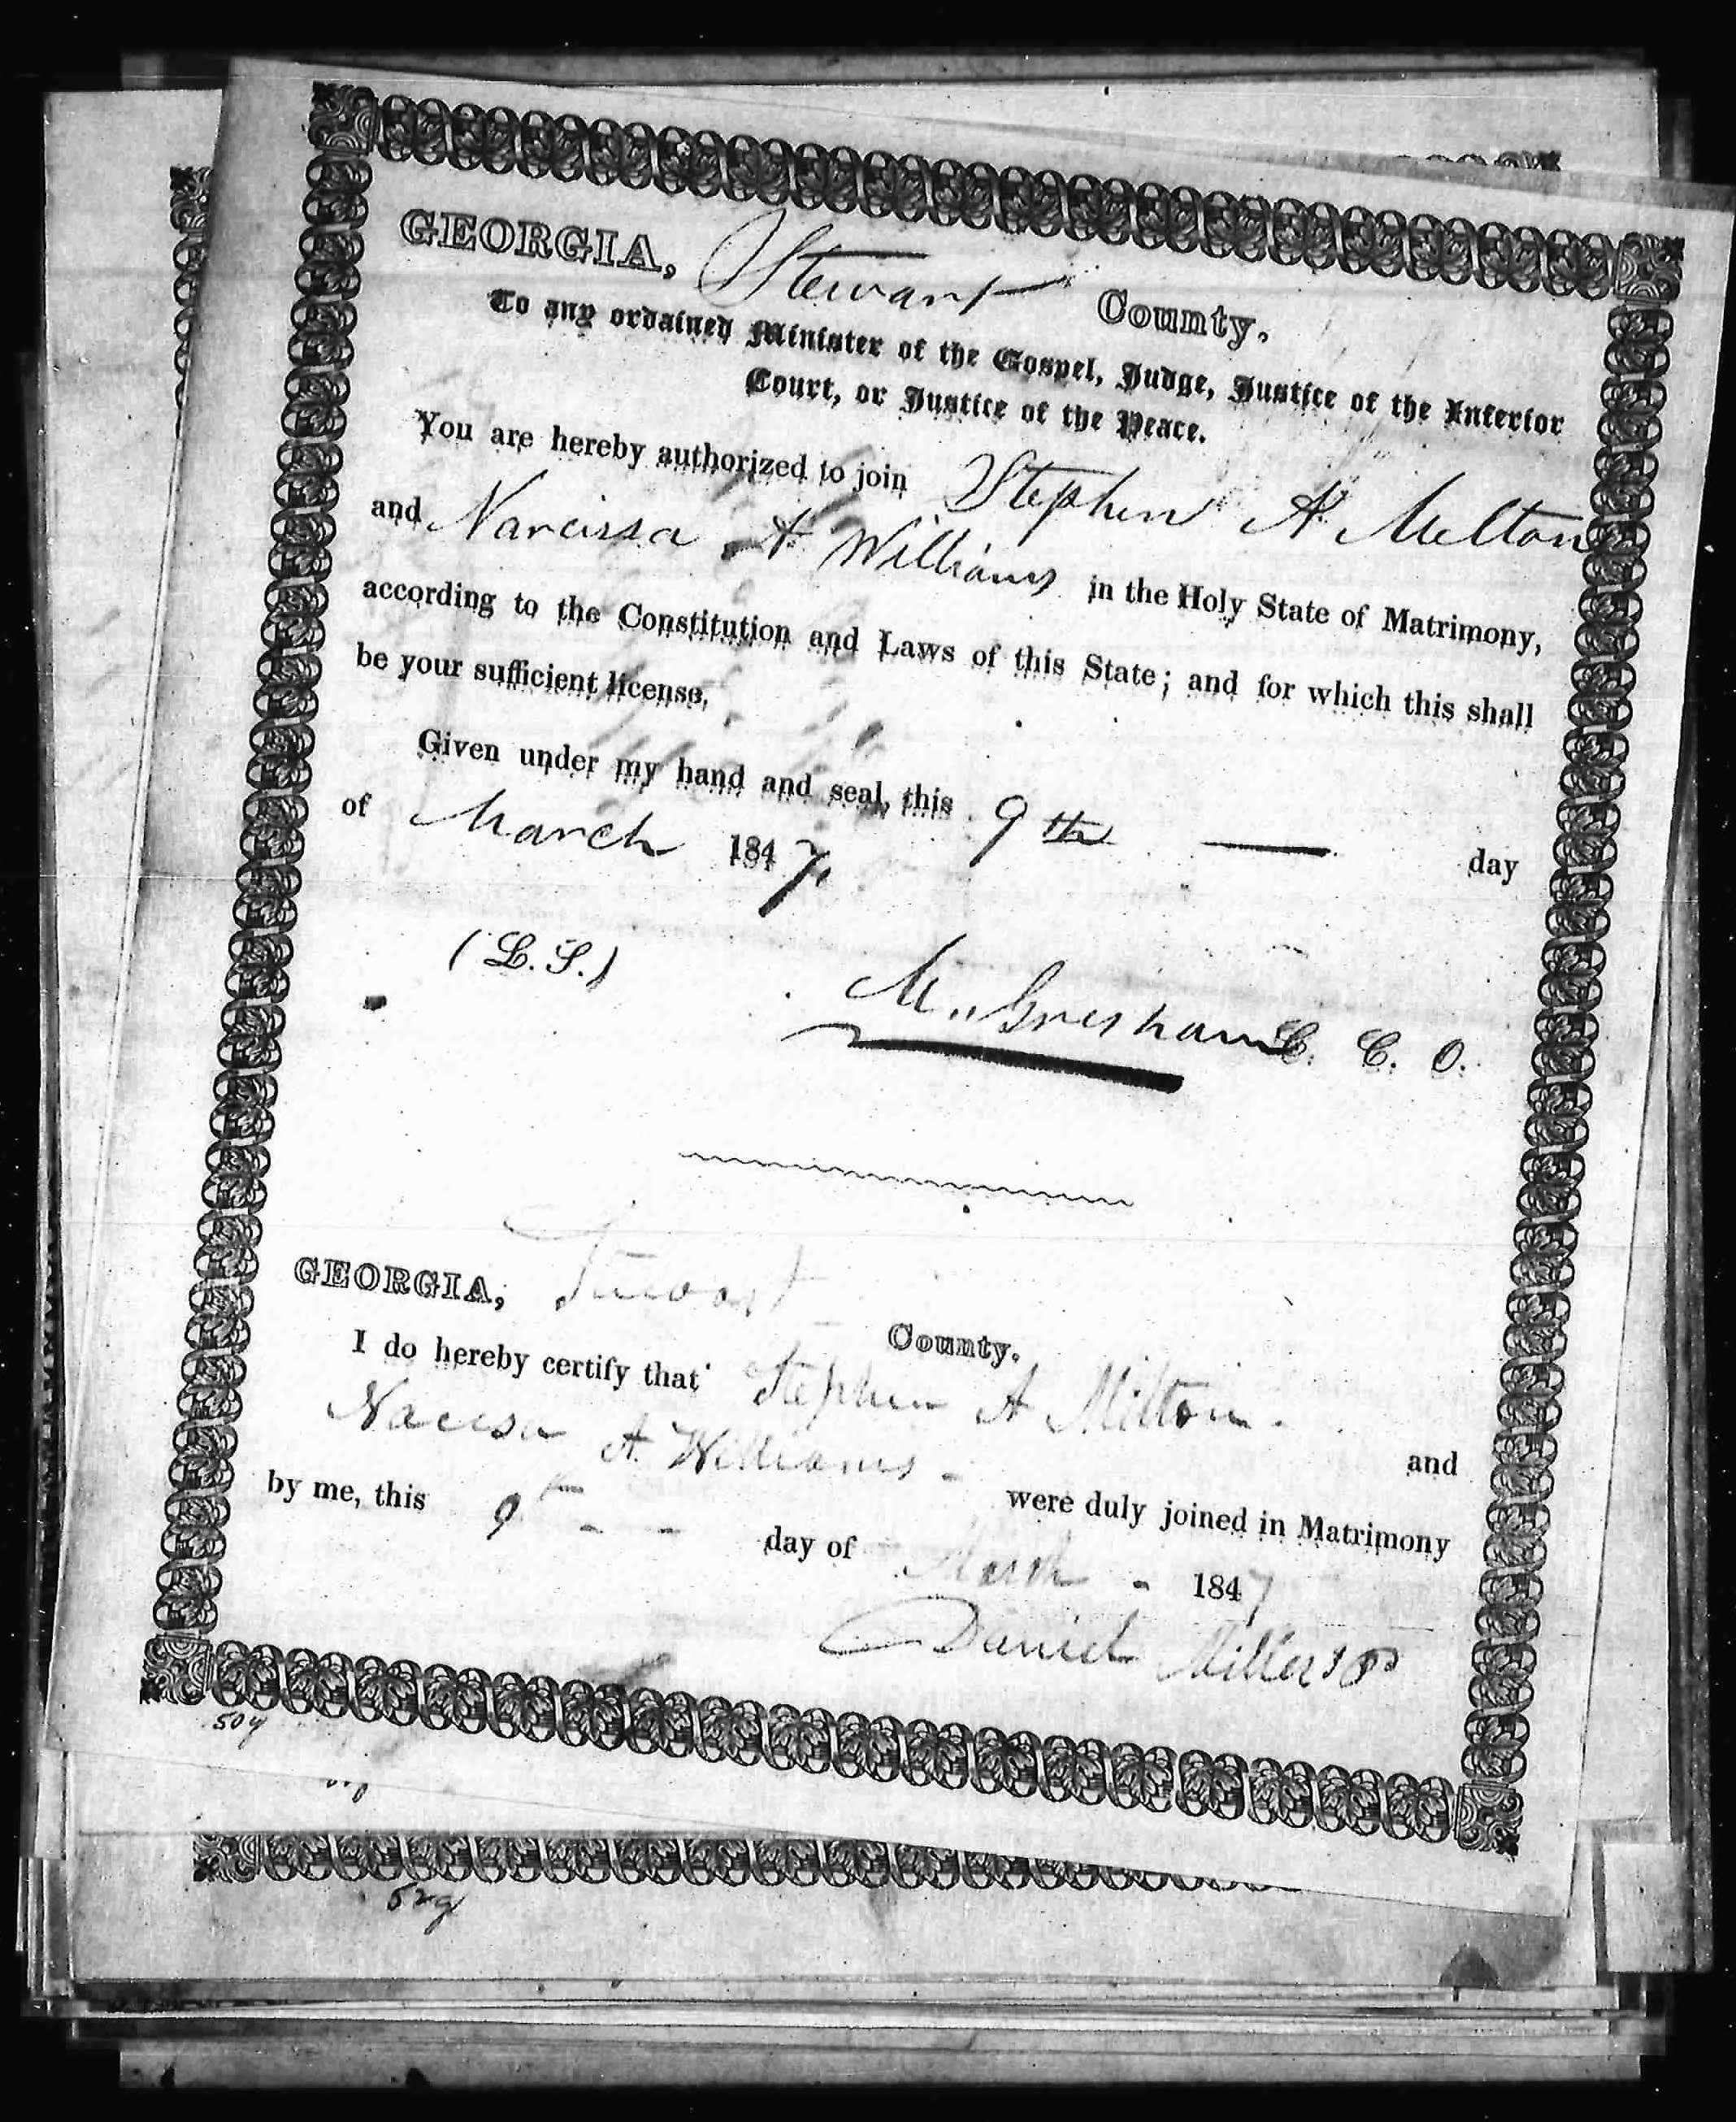 GEORGIA, Stewart County.
To any ordained Minister of the Gospel, Judge, Justice of the Inferior
Court, or Justice of the Peace.
You are hereby authorized to join Stephen A Melton
and Narcissa A Williams in the Holy State of Matrimony,
according to the Constitution and Laws of this State; and for which this shall
be your sufficient license,
Given under my hand and seal, this 9th day
of March 1847.
(L.S.)
M. Gresham C. C. O.
GEORGIA, Stewart County.
I do hereby certify that Stephen A Milton and
Narcisa A. Williams were duly joined in Matrimony
by me, this 9th day of March 1847
Daniel Miller JP
504
529